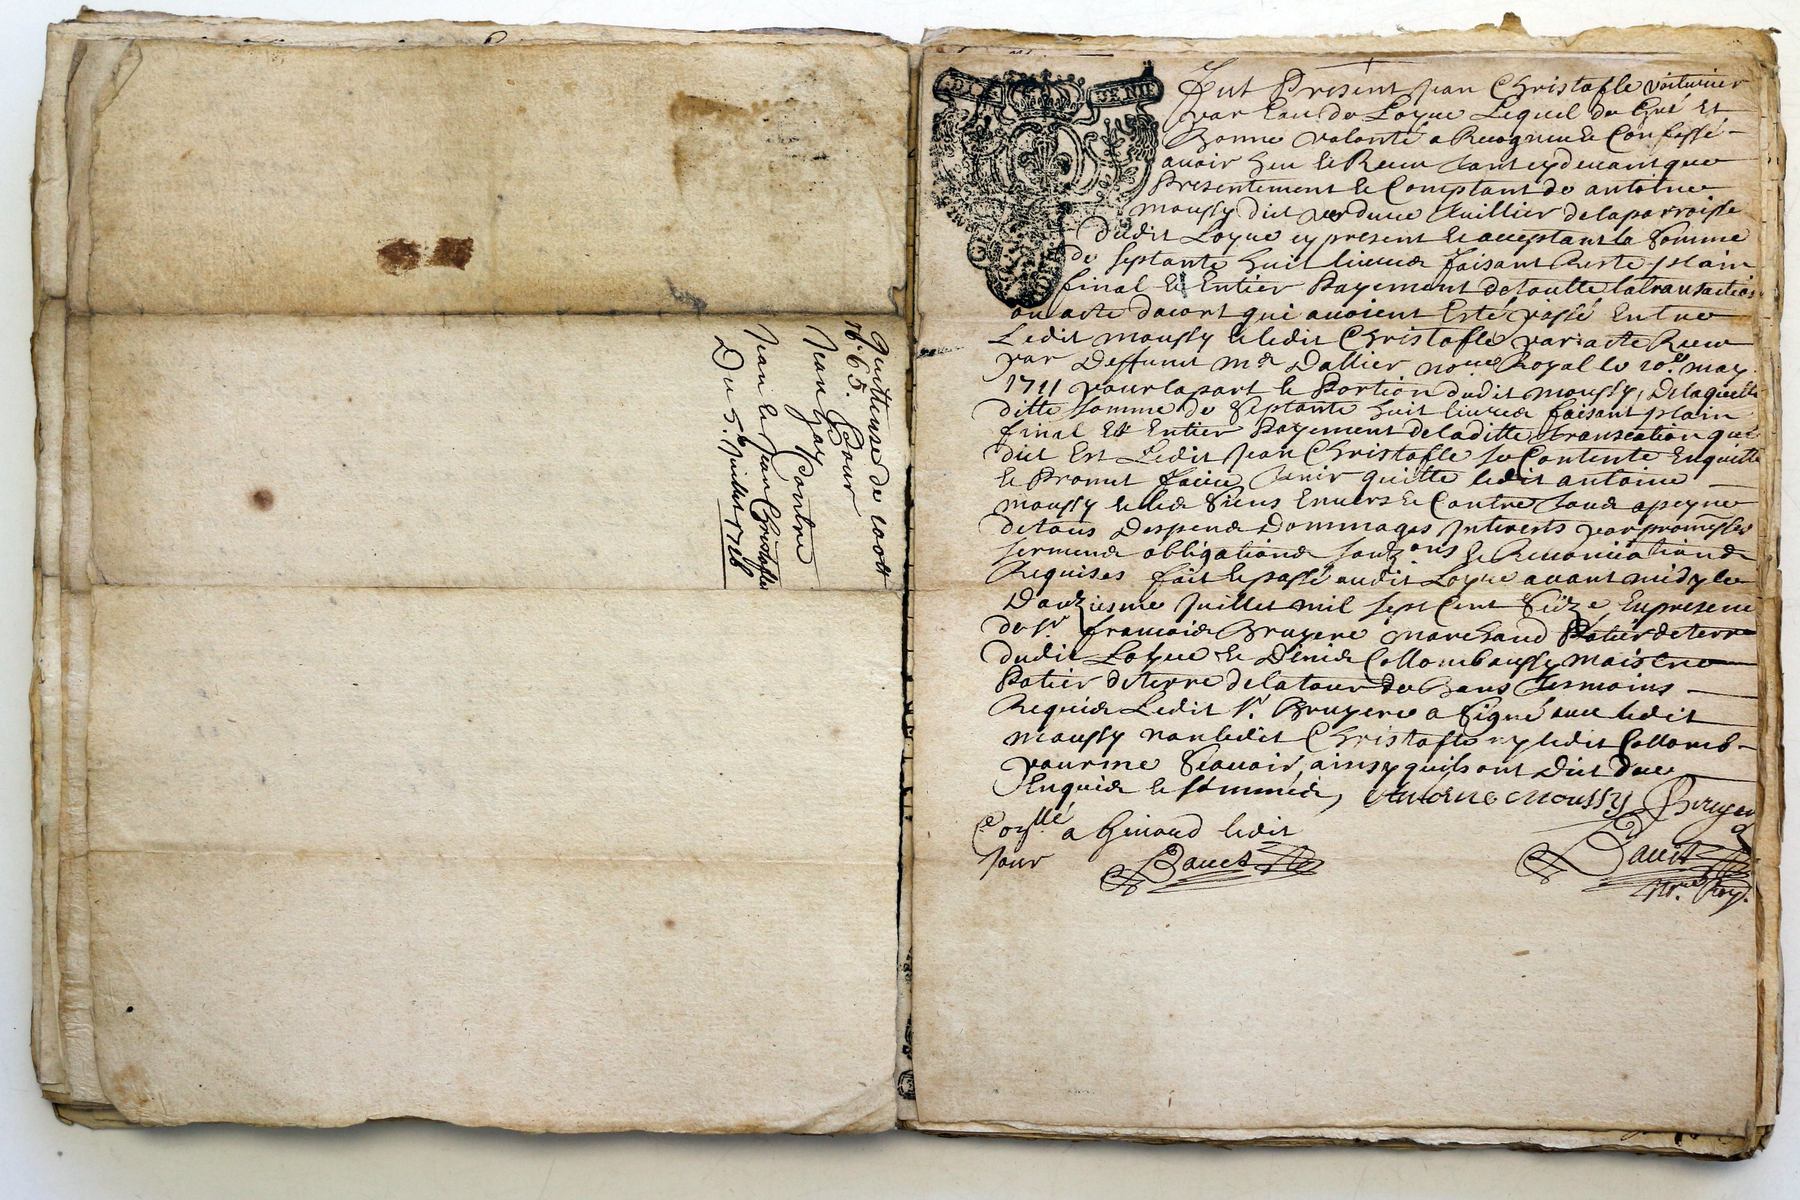 Quittense de 100tt
16s 6d.
Pour
Jean Gay Contre
Jean et Jean Christofle
Du 5e Juillet 1716
Fut Present Jean Christofle voiturier
par Eau de Loyre Lequel de Gré Et
Bonne volonté a Recogneu et Confessé
avoir heu et Receu tant cydevant que
Presentement et Comptant de antoine
moussy dict verdure tuillier delaparroisse
dudit Loyre cy present et acceptant la Somme
de septante huit livres faisant Reste plain
final Et Entier Payement detoutte latransaction
ou acte dacort qui avoient Esté passé Entre
Ledit moussy et ledit Christofle par acte Receu
par Deffunt Me Dallier nore Royal le 10e may
1711 pour lapart et Portion dudit moussy, Delaquelle
ditte somme de Septante huit livres faisant plain
final Et Entier Payement deladitte transaction que
dict Est Ledit Jean Christofle se Contente Enquitte
et Promet faire tenir quitte ledit antoine
moussy et les Siens Envers et Contre tous apeyne
detous Despens Dommages Interests par promesses
serments obligations et Renonciations
Requises fait et passé audit Loyre avant midy le
Douziesme Juillet mil sept Cent Seize En presence
de Sr francois Bruyere marchand Potier de terre
dudit Loyre et Denis Collomb aussy maistre
Potier de terre de la tour de Bans tesmoins
Requis Ledit Sr. Bruyere a Signé avec ledit
moussy non ledit Christofle ny ledit Collomb
pour ne Scavoir, ainsy quils ont Dict de ce
Enquis et sommés, Antoine Moussy Bruyere
Collé a Givord ledit
Jour